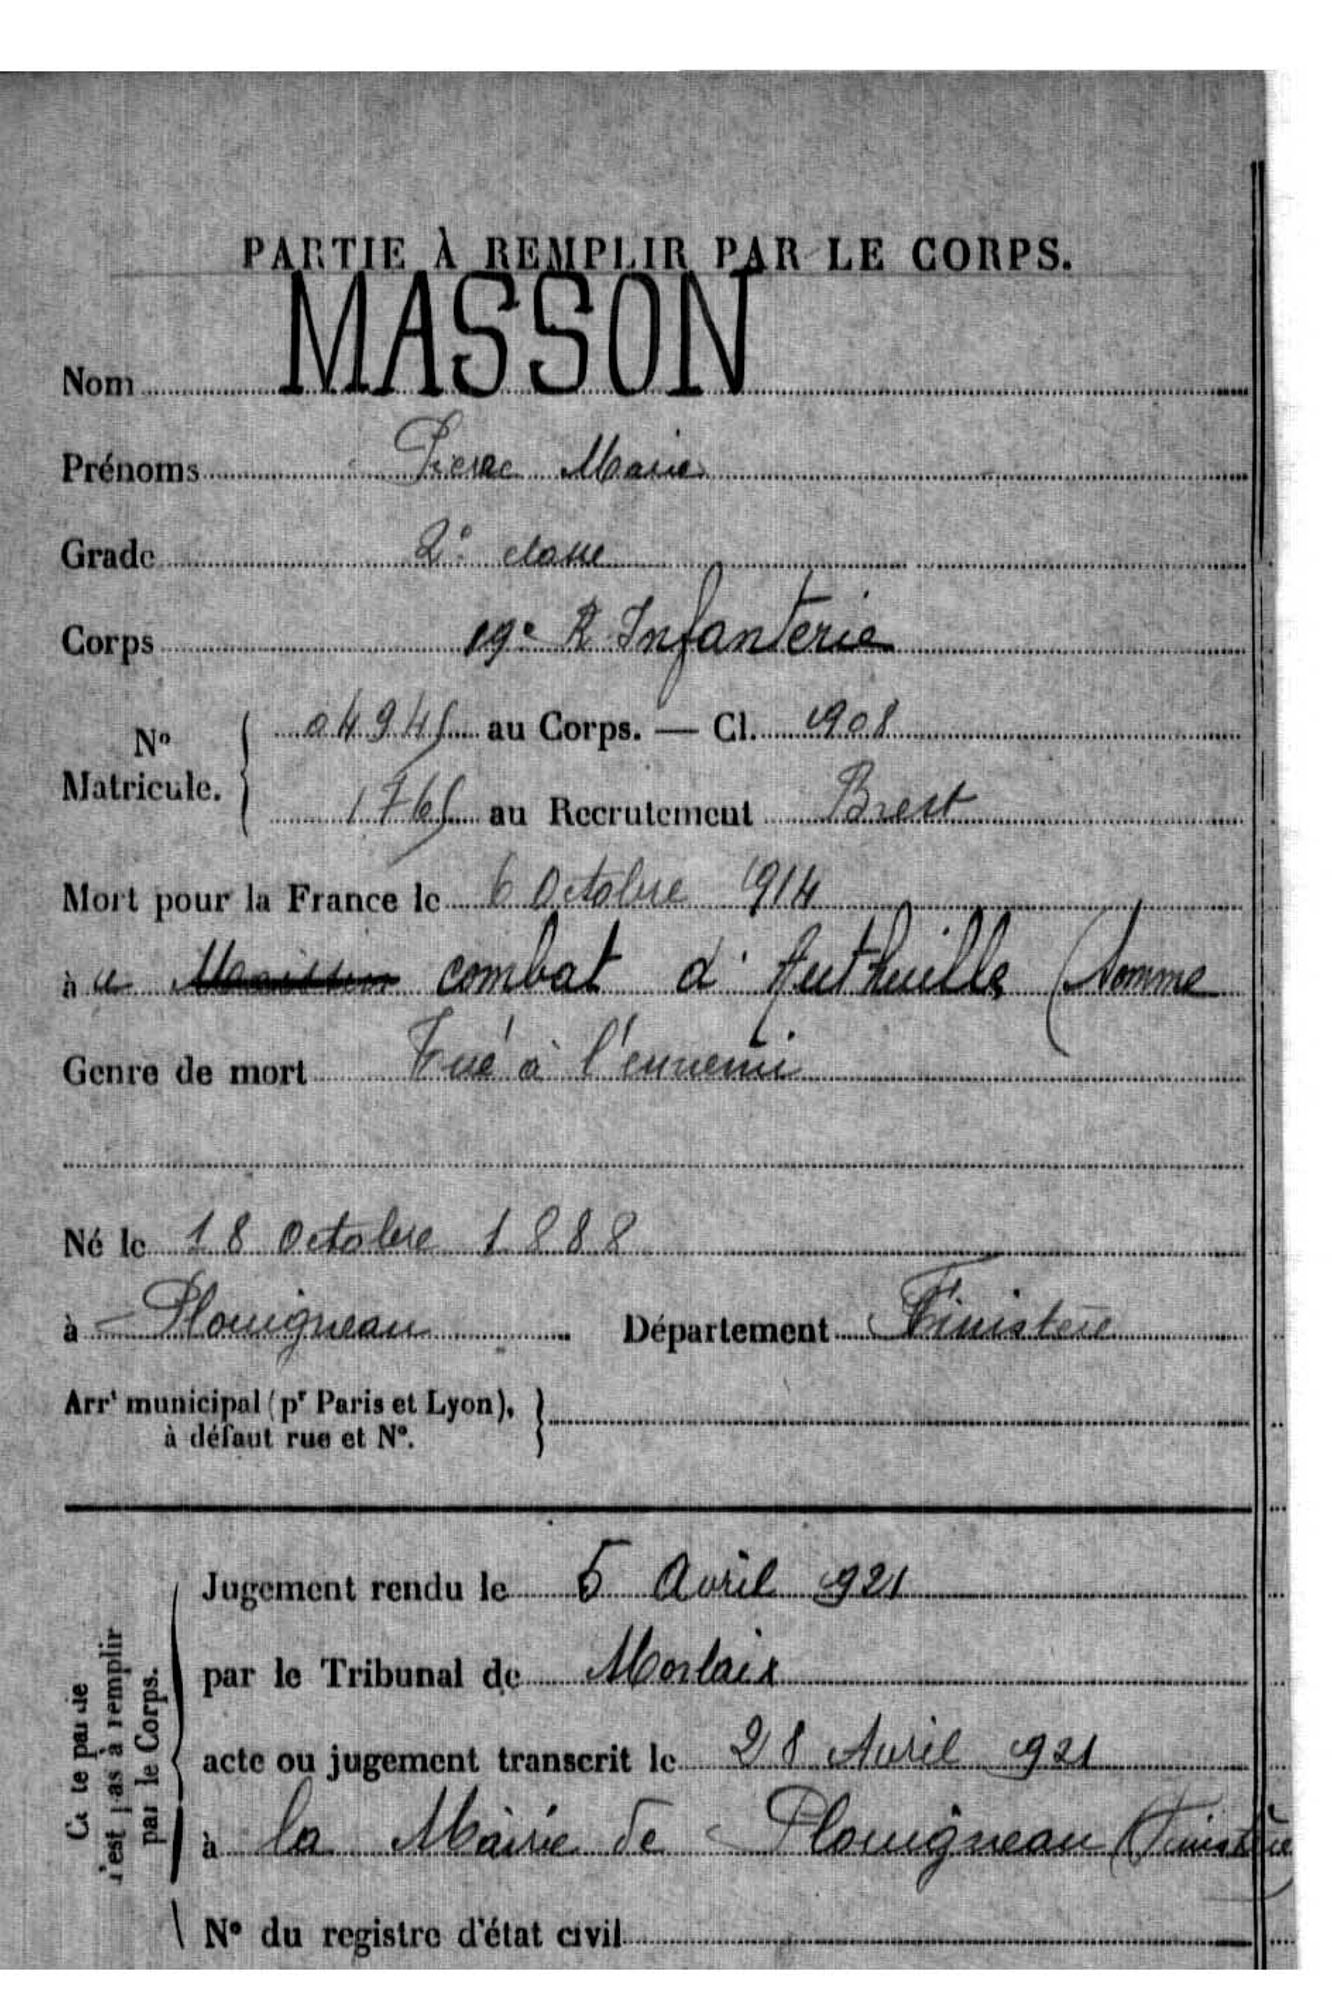 PARTIE À REMPLIR PAR LE CORPS.
Nom MASSON
Prénoms Pierre Marie
Grade 2e classe
Corps 19e R Infanterie
No Matricule. 04945 au Corps. — Cl. 1908
1765 au Recrutement Brest
Mort pour la France le 6 Octobre 1914
à combat d'Authuille (Somme
Genre de mort Tué à l'ennemi
Né le 18 Octobre 1888
à Plouigneau Département Finistère
Arrt municipal (pr Paris et Lyon),
à défaut rue et No.
Cette partie
n'est pas à remplir
par le Corps.
Jugement rendu le 5 Avril 1921
par le Tribunal de Morlaix
acte ou jugement transcrit le 28 Avril 1921
à la Mairie de Plouigneau (Finistère
No du registre d'état civil